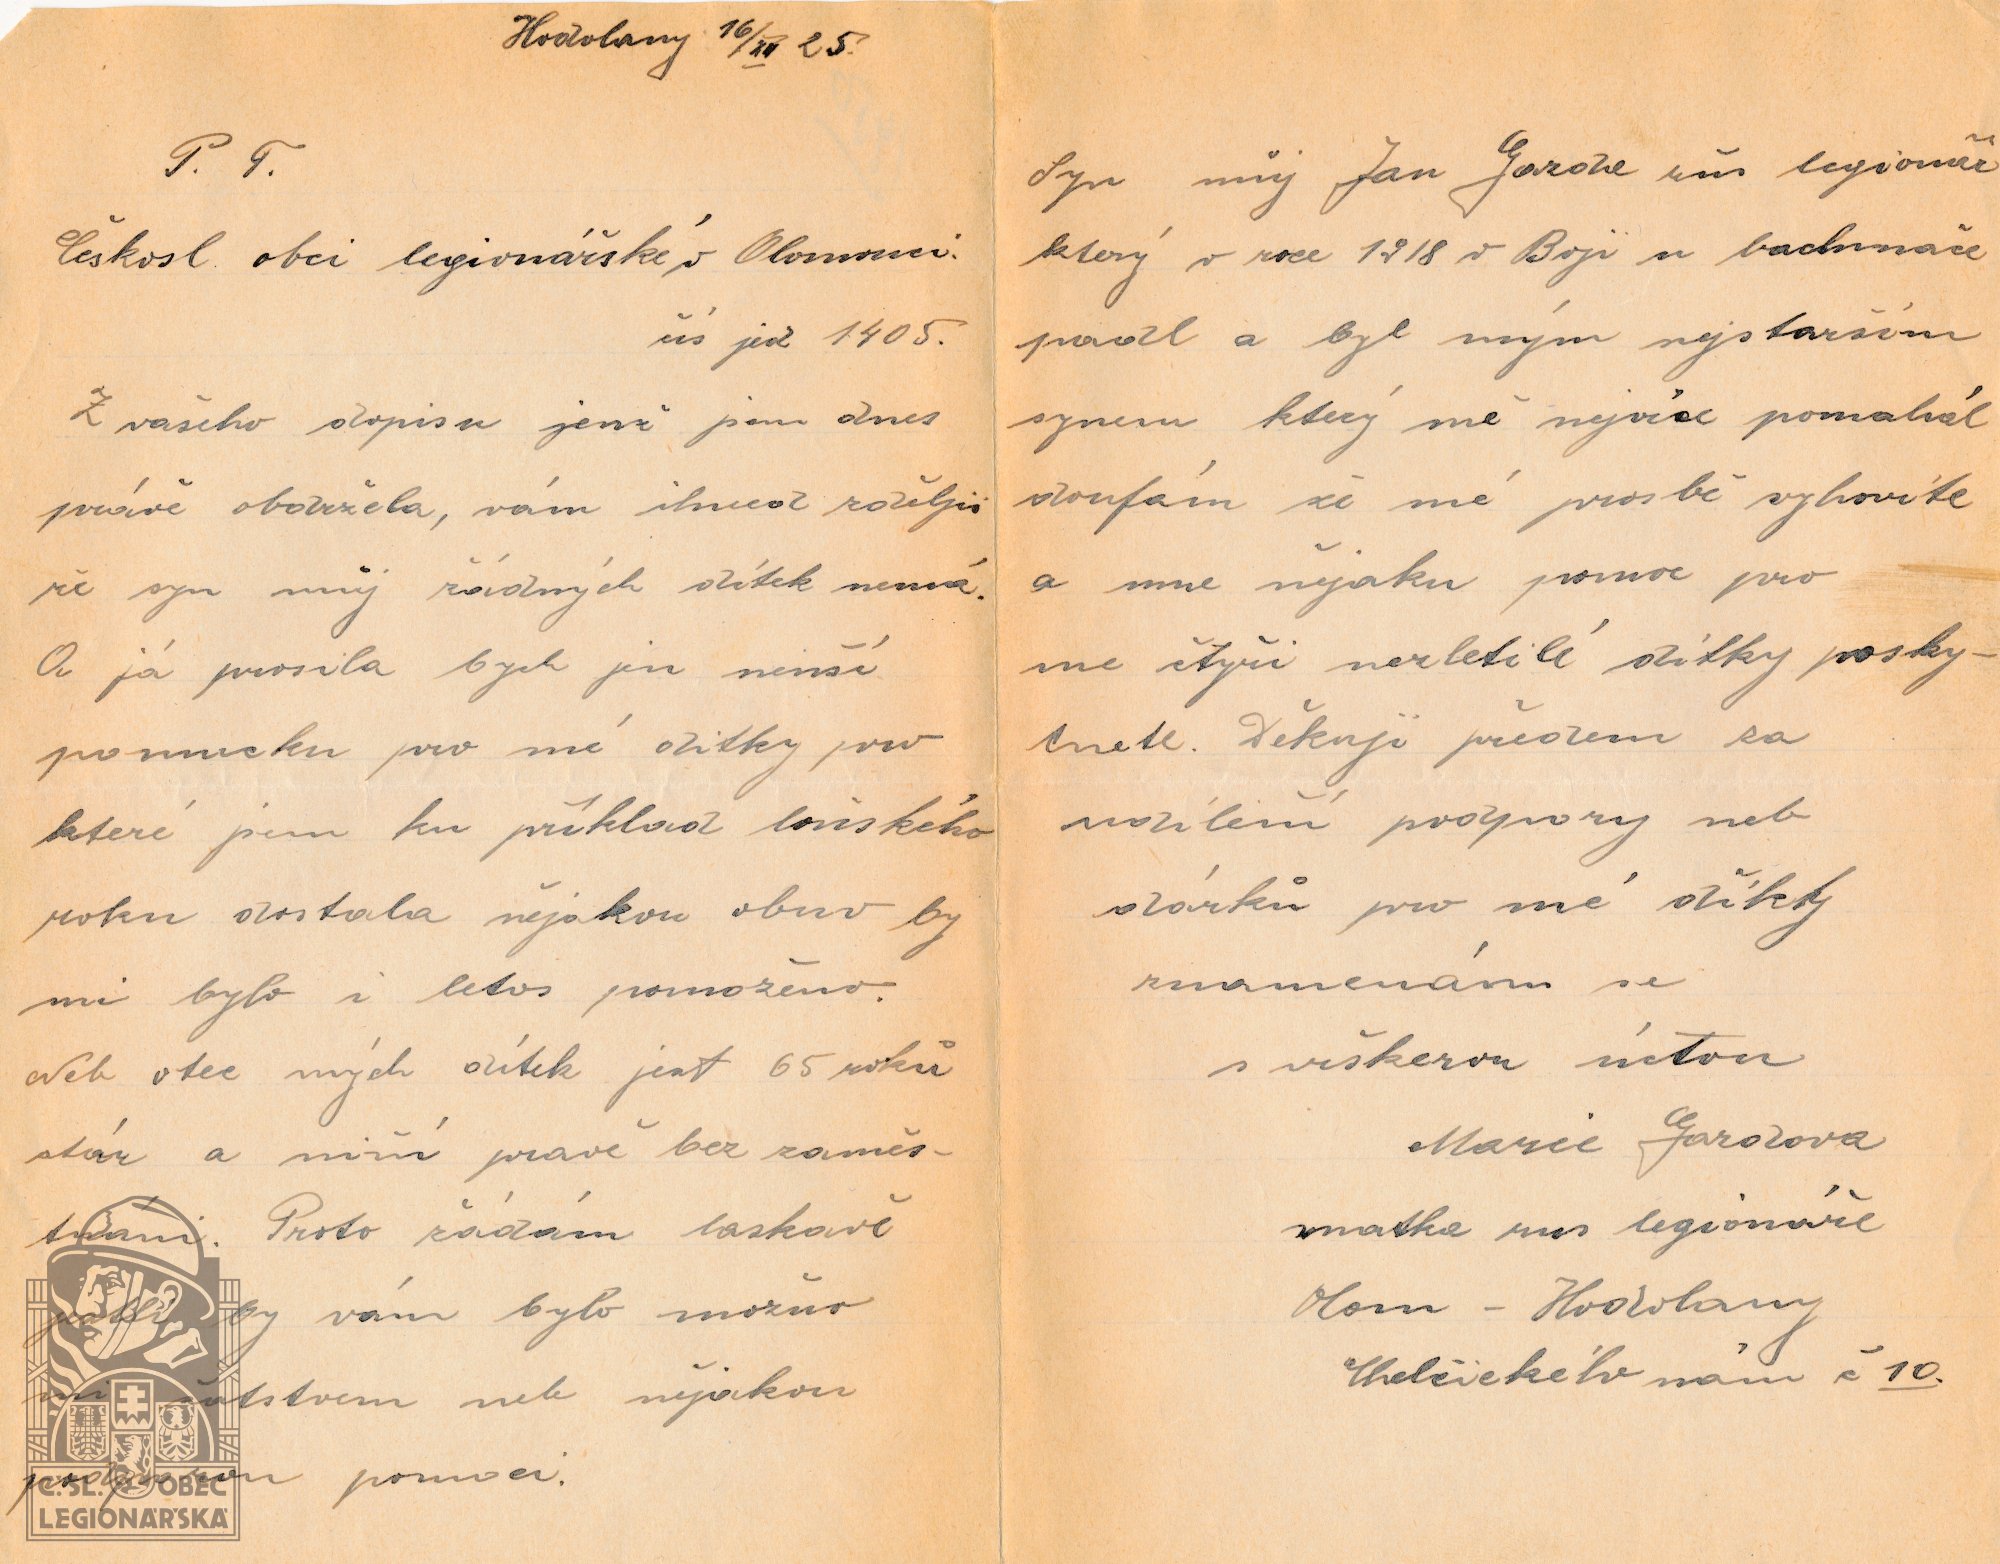 Hodolany 16/XII 25.
P. T.
Českosl. obci legionářské v Olomouci.
čís jed 1405.
Z vašeho dopisu jenž jsem dnes
právě obdržela, vám ihned zděluji
že syn můj žádných dítek nemá.
A já prosila bych jen ninší
pomucku pro mé ditky pro
které jsem ku příklad loňského
roku dostala nějakou obuv by
mi bylo i letos pomoženo.
Neb otec mých dítek jest 65 roků
stár a niní pravě bez zaměs-
tnání. Proto žádám laskavě
jestli by vám bylo možno
mi šatstvem neb nějakou
podporou pomoci.
Syn můj Jan Gazda rus legionář
který v roce 1918 v Boji u bachmače
padl a byl mým nejstarším
synem který mě nejvíce pomahál
doufám že mé prosbě vyhovíte
a mne nějaku pomoc pro
me čtyři nezletilé dítky posky-
tnete. Děkuji předem za
udílení podpory neb
dárků pro mé dítky
znamenám se
s veškerou úctou
Marie Gazdova
matka rus legionáře
Olom - Hodolany
Chelčického nám č 10.
Č. SL. OBEC
LEGIONÁŘSKÁ